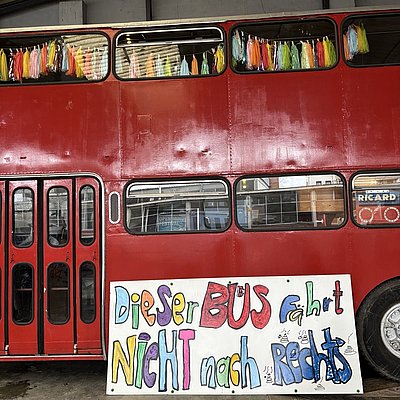 RICARD
DieSer BUS fährt
NiCHT nach Rechts